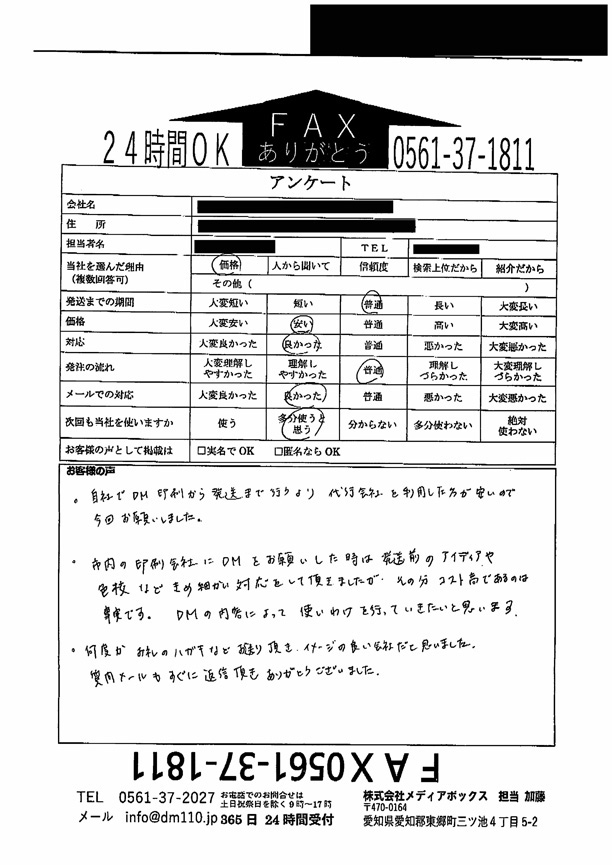 FAX
ありがとう
24時間OK
0561-37-1811
アンケート
会社名
住 所
担当者名 TEL
当社を選んだ理由 (複数回答可) 価格 人から聞いて 信頼度 検索上位だから 紹介だから
その他 ( )
発送までの期間 大変短い 短い 普通 長い 大変長い
価格 大変安い 安い 普通 高い 大変高い
対応 大変良かった 良かった 普通 悪かった 大変悪かった
発注の流れ 大変理解しやすかった 理解しやすかった 普通 理解しづらかった 大変理解しづらかった
メールでの対応 大変良かった 良かった 普通 悪かった 大変悪かった
次回も当社を使いますか 使う 多分使うと思う 分からない 多分使わない 絶対使わない
お客様の声として掲載は □実名でOK □匿名ならOK
お客様の声
・自社でDM印刷から発送まで行うより 代行会社を利用した方が安いので
今回お願いしました。
・市内の印刷会社にDMをお願いした時は発送前のアイディアや
色校などきめ細かい対応をして頂きましたが、その分コスト高であるのは
事実です。 DMの内容によって使いわけを行っていきたいと思います。
・何度か お礼のハガキなど 頂き、イメージの良い会社だと思いました。
質問メールもすぐに返信頂き ありがとうございました。
FAX0561-37-1811
TEL 0561-37-2027 お電話でのお問合せは
土日祝祭日を除く9時〜17時
メール info@dm110.jp 365日 24時間受付
株式会社メディアボックス 担当 加藤
〒470-0164
愛知県愛知郡東郷町三ツ池4丁目5-2